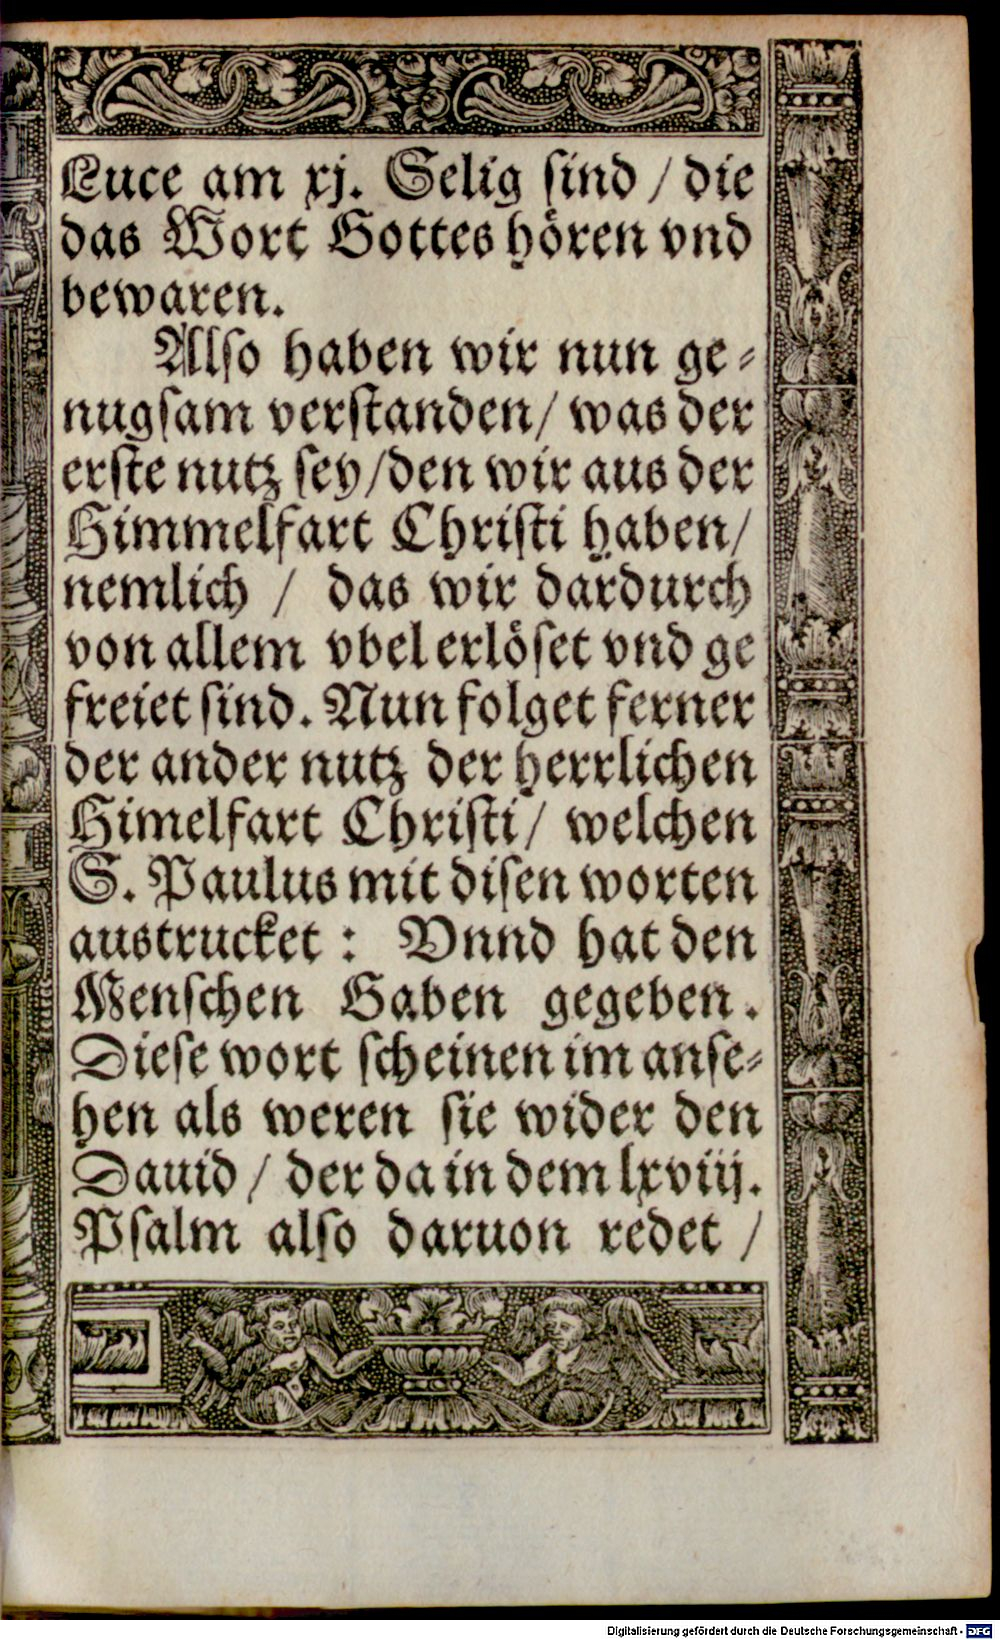 Luce am xj. Selig sind / die
das Wort Gottes hören vnd
bewaren.
Also haben wir nun ge-
nugsam verstanden/ was der
erste nutz sey/den wir aus der
Himmelfart Christi haben/
nemlich / das wir dardurch
von allem vbel erlöset vnd ge
freiet sind. Nun folget ferner
der ander nutz der herrlichen
Himelfart Christi/ welchen
S. Paulus mit disen worten
austrucket : Vnnd hat den
Menschen Gaben gegeben.
Diese wort scheinen im anse-
hen als weren sie wider den
Dauid / der da in dem lxviij.
Psalm also daruon redet /
Digitalisierung gefördert durch die Deutsche Forschungsgemeinschaft - DFG